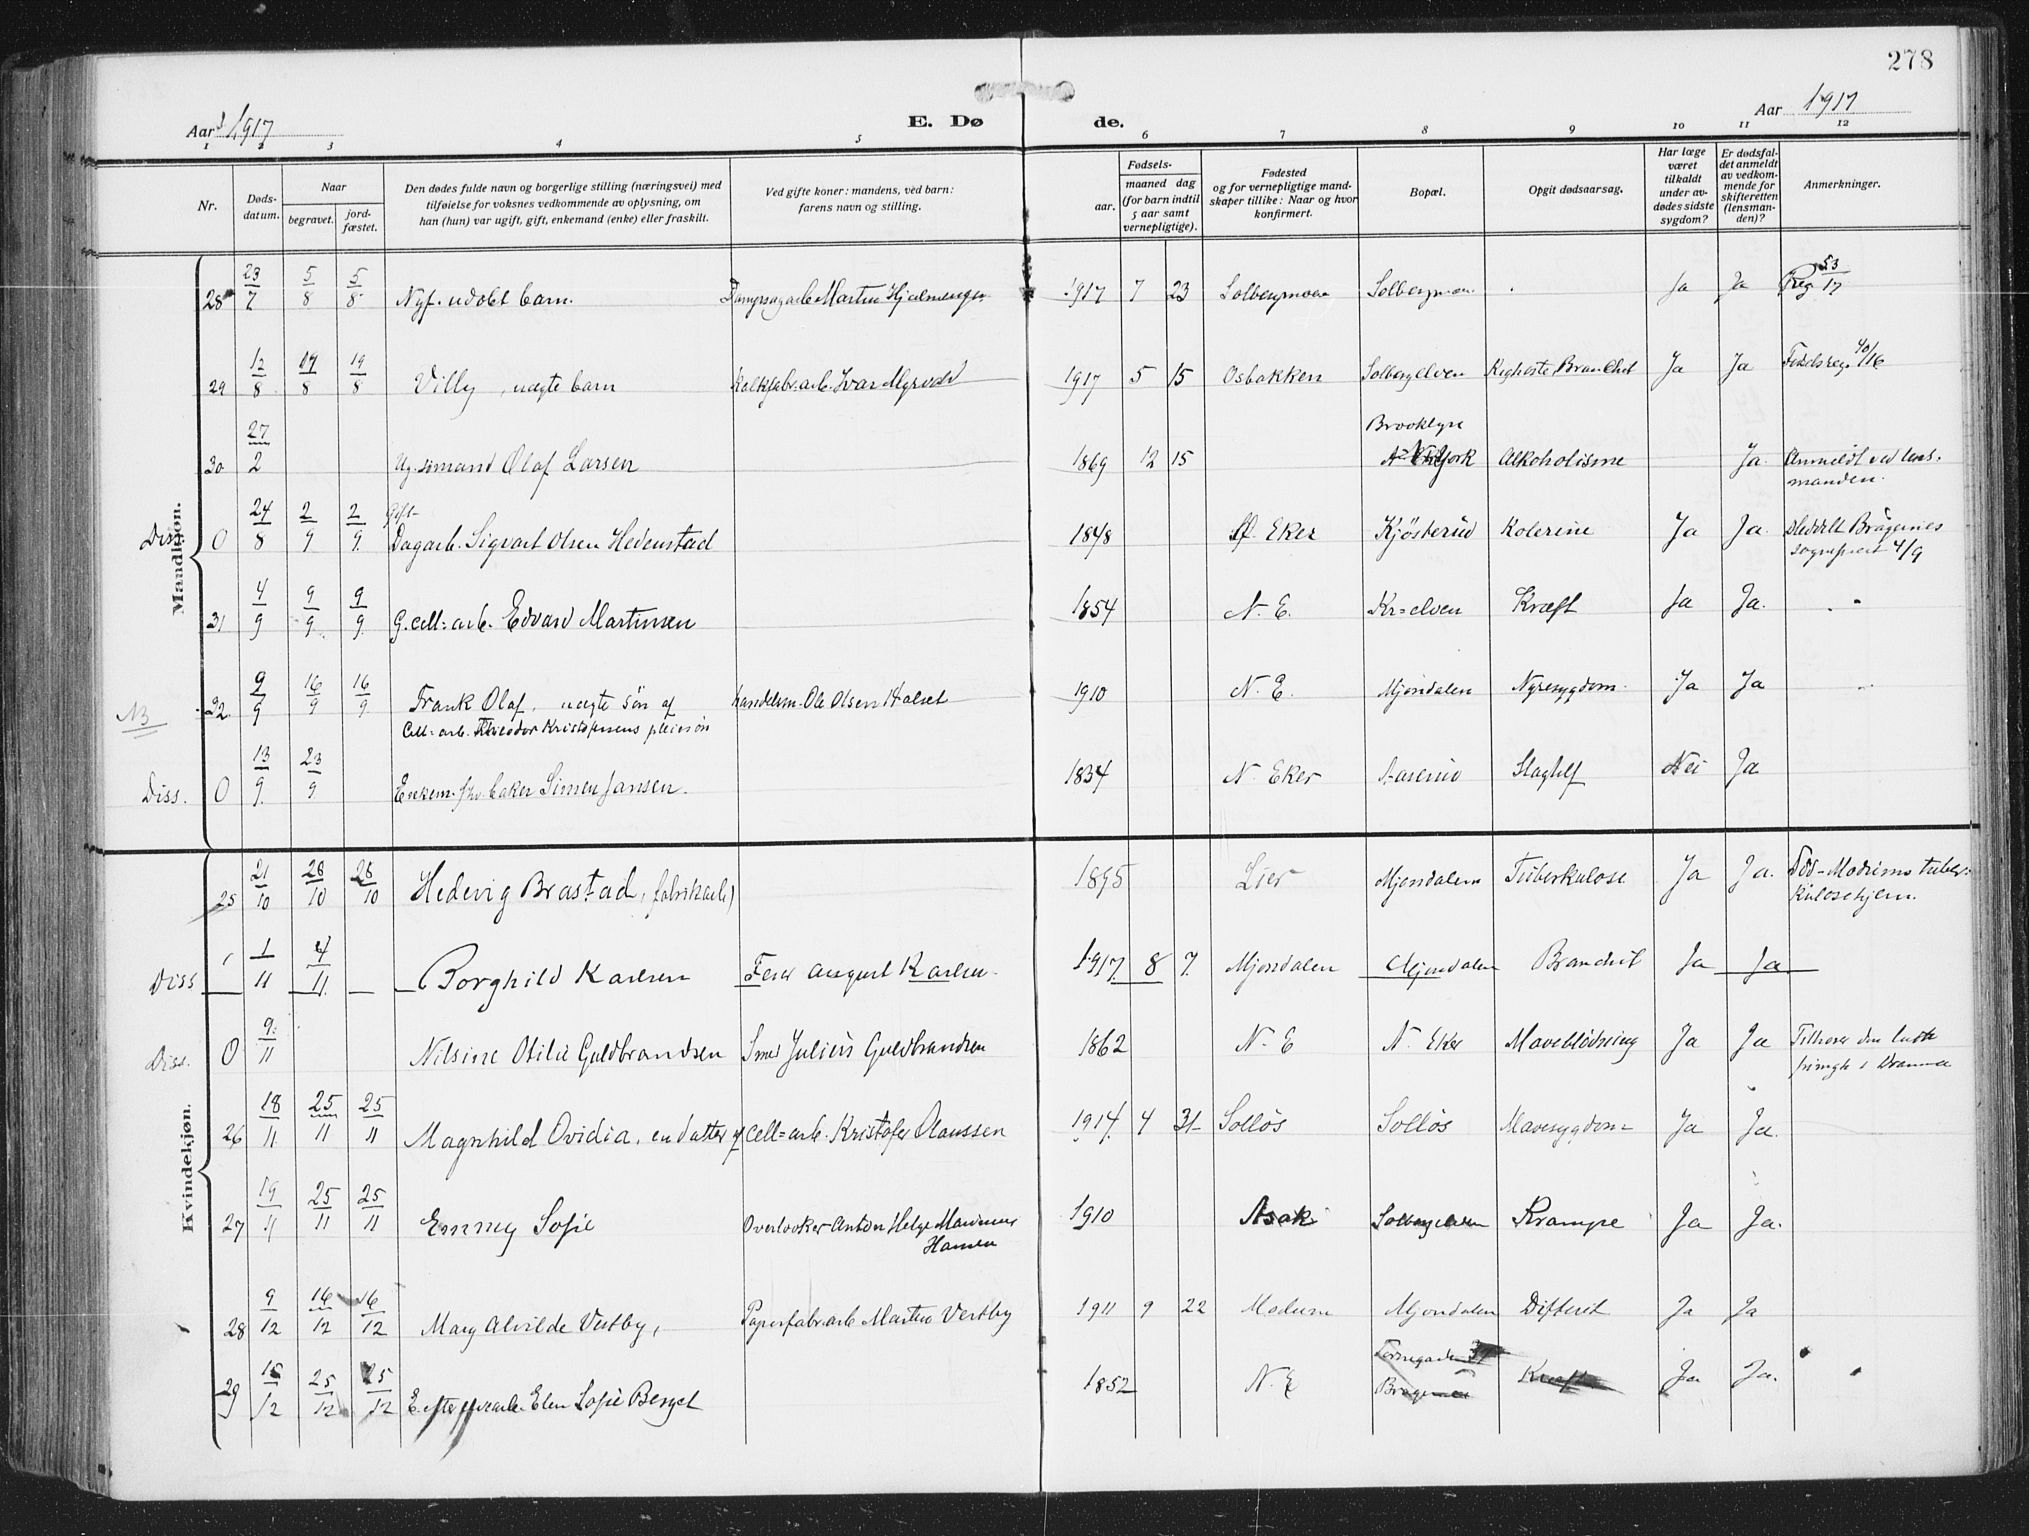 278
Aar 1917
E. Dø de.
Aar 1917
1 2 3 4 5 6 7 8 9 10 11 12
Nr.
Døds-
datum.
Naar
begravet.
jord-
fæstet.
Den dødes fulde navn og borgerlige stilling (næringsvei) med
tilføielse for voksnes vedkommende av oplysning, om
han (hun) var ugift, gift, enkemand (enke) eller fraskilt.
Ved gifte koner: mandens, ved barn:
farens navn og stilling.
Fødsels-
aar.
maaned dag
(for barn indtil
5 aar samt
vernepligtige).
Fødested
og for vernepligtige mand-
skaper tillike: Naar og hvor
konfirmert.
Bopæl.
Opgit dødsaarsag.
Har læge
været
tilkaldt
under av-
dødes sidste
sygdom?
Er dødsfal-
det anmeldt
av vedkom-
mende for
skifteretten
(lensman-
den)?
Anmerkninger.
Mandkjøn.
28 23/7 5/8 5/8 Nyf. udøbt barn. Martin 1917 7 23 Solbergmoen Solbergmoen Ja Ja Reg 53/17
29 12/8 19/8 Villy, uegte barn Ivar Myrvold 1917 5 15 Osbakken Solbergelven Ja Ja 40/16
Brooklyn
30 27/2 Ug. sømand Olaf Larsen 1869 12 15 Alkoholisme Ja. Anmeldt ved lens-
manden.
Gift
Diss. 0 24/8 2/9 2/9 Dagarb. Sigvart Olsen Hedenstad 1848 Ø. Eker Kjøsterud Kolerine Ja Ja. Bragernes
4/9
31 4/9 9/9 9/9 G. cell=arb. Edvard Martinsen 1854 N. E. Kr=elven Kræft Ja Ja. "
NB 32 9/9 16/9 16/9 Frank Olaf, uegte søn af handelsm. Ole Olsen Halset 1910 N. E. Mjøndalen Nyresygdom Ja Ja "
Cell=arb. Theodor Kristofersens pleiesøn
Diss. 0 13/9 23/9 Enkem. Simen Jansen. 1834 N. Eker Aaserud Slagtilf Nei Ja
Kvindekjøn.
25 21/10 28/10 28/10 Hedevig Brastad, fabrikarb. 1895 Lier Mjøndalen Tuberkulose Ja Ja. Død - Modums tuber-
kulosehjem.
Diss 1/11 4/11 Borghild Karlsen August Karlsen 1917 8 7 Mjøndalen Mjøndalen Ja Ja
Diss. 0 9/11 Nilsine Otilie Guldbrandsen Smed Julius Guldbrandsen 1862 N. E N. Eker Maveblødning Ja Ja Tilhører den luth
frimgh i Drammen
26 18/11 25/11 25/11 Magnhild Ovidia, en datter af cell=arb. Kristofer Olaussen 1914 4 31 Solløs Solløs Mavesygdom Ja Ja.
27 19/11 25/11 25/11 Emmy Sofie Overlooker Anton Helge
Hansen 1910 Asak Solbergelven Krampe Ja Ja.
28 9/12 16/12 16/12 Mary Alvilde Vestby, Papirfabr.arb Martin Vestby 1911 9 22 Modum Mjøndalen Difterit Ja Ja
29 25/12 25/12 Elen Sofie Berget 1852 N. E Kræft Ja Ja.